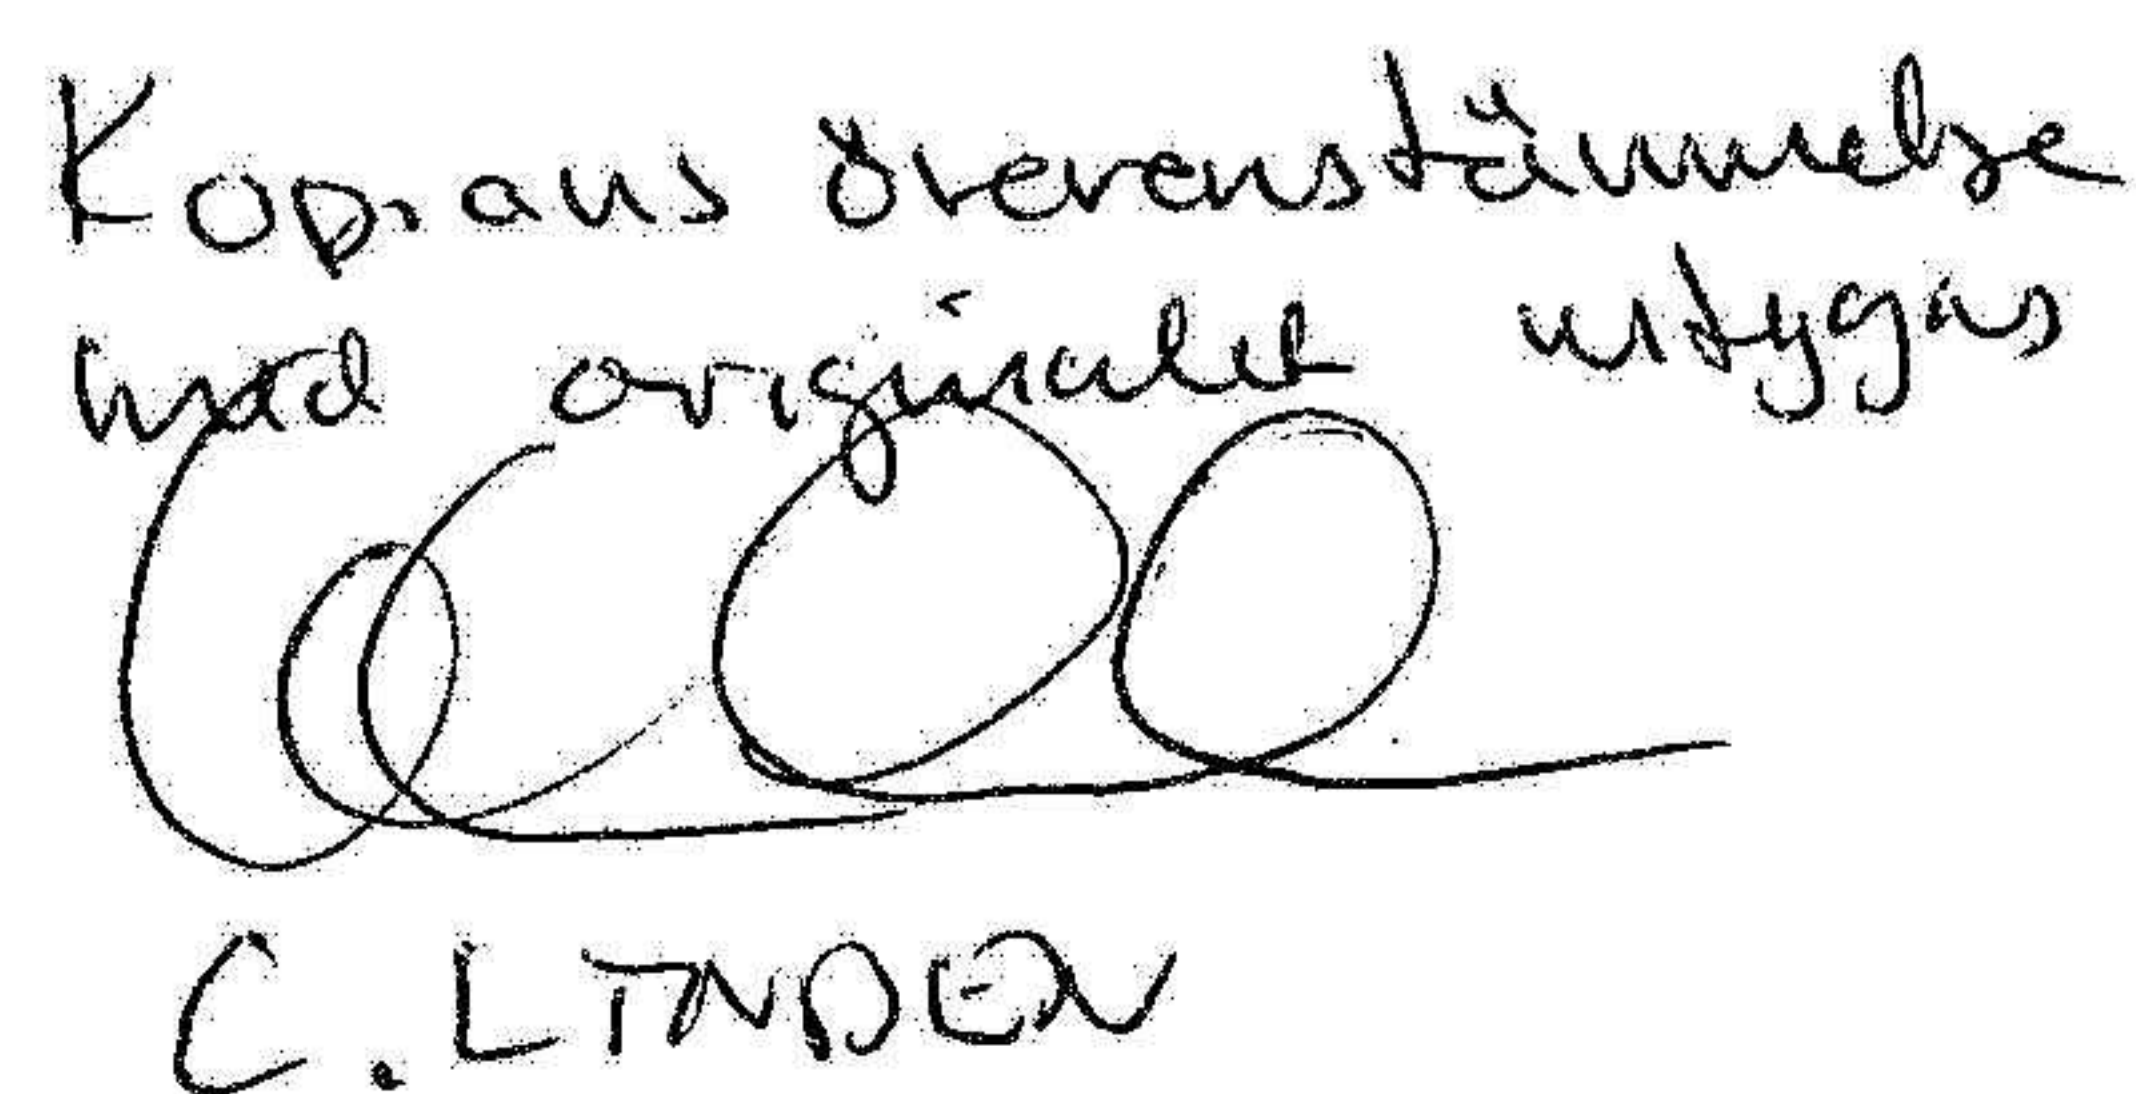 Kopians överensstämmelse
med originalet intygas
C. LINDEN